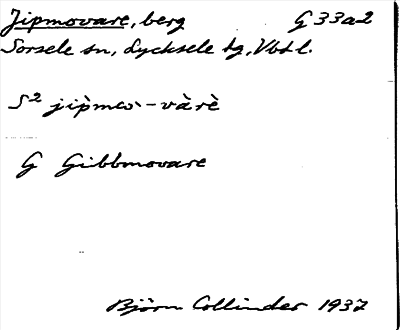 Jipmovare, berg G 33a2
Sorsele sn, Lycksele tg, Vbtl.
S² jìpmω-vàrè
G Gibbmovare
Björn Collinder 1937